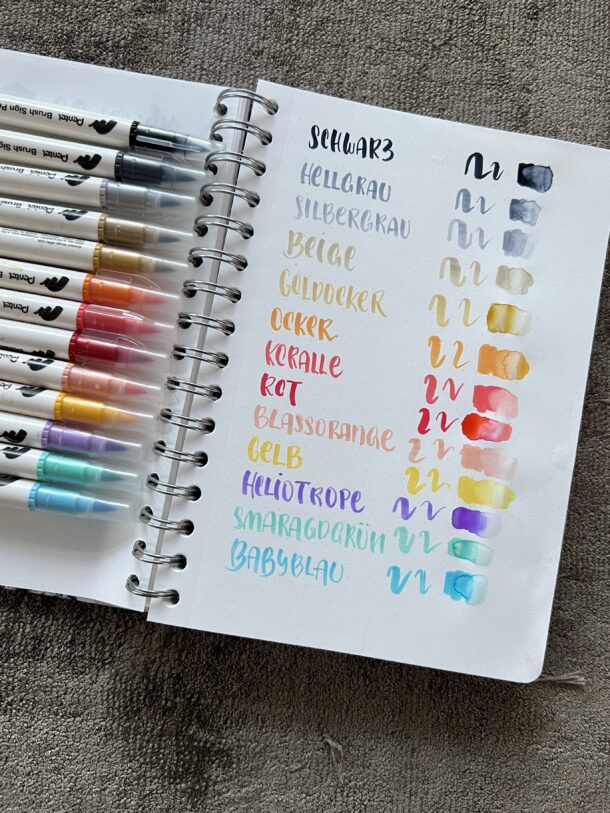 Pentel Brush Sign Pe
Pentel Brush Sign
Pentel
Pentel
SCHWARZ
HELLGRAU
SILBERGRAU
BEIGE
GOLDOCKER
OCKER
KORALLE
ROT
BLASSORANGE
GELB
HELIOTROPE
SMARAGDGRÜN
BABYBLAU